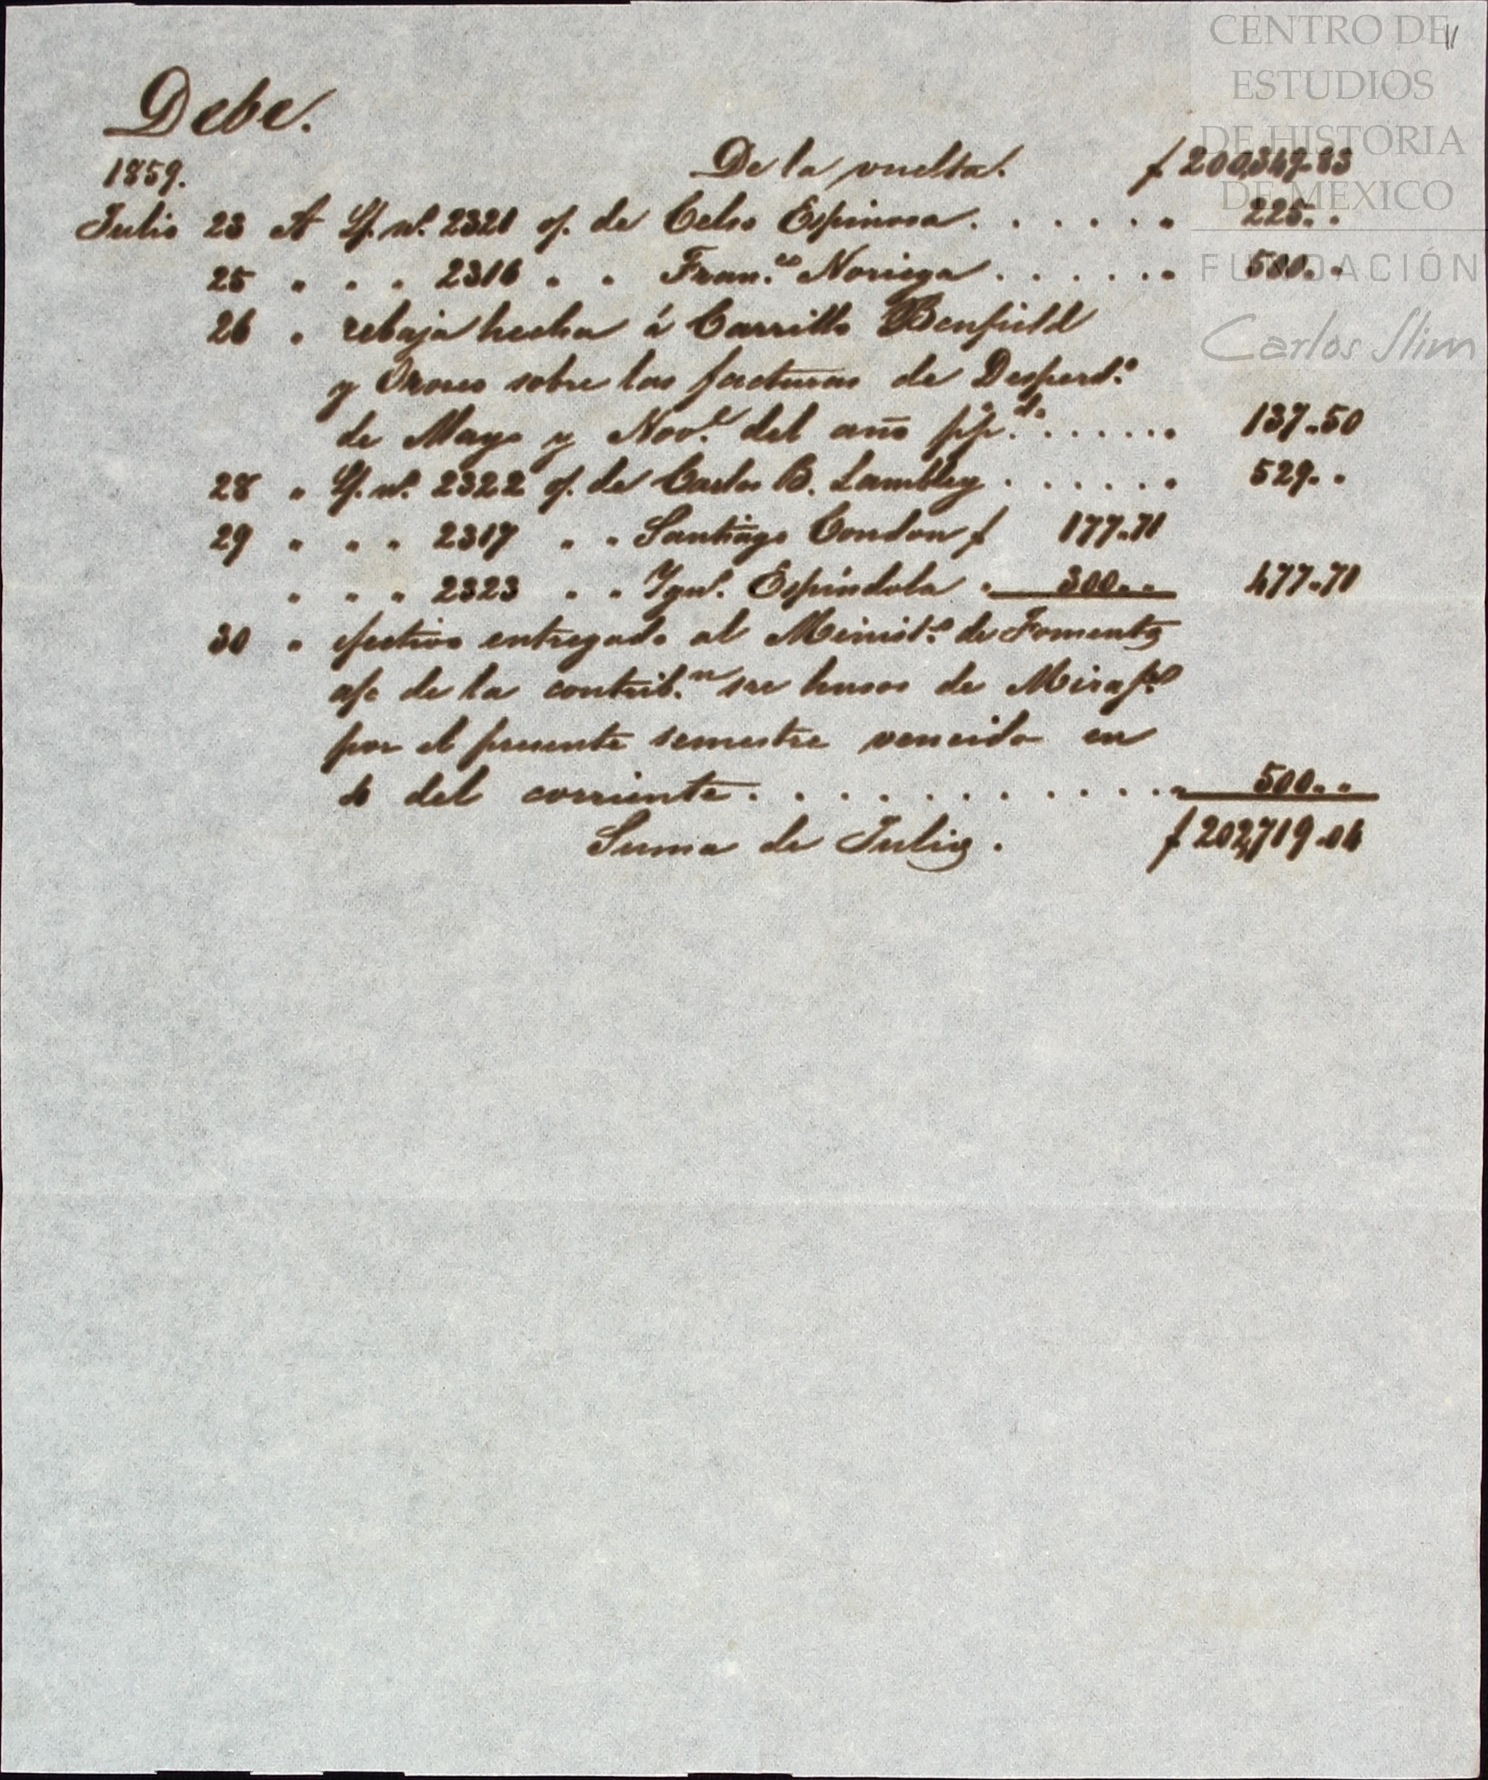 CENTRO DE
ESTUDIOS
DE HISTORIA
DE MEXICO
FUNDACIÓN
Carlos Slim
11
Debe.
1859. De la vuelta. $ 200,349.83
Julio 23 A L/. n.º 2321 o/. de Celso Espinosa . . . . . . " 225 " "
25 " " " 2316 " " Fran.co Noriega . . . . . . " 500 " "
26 " rebaja hecha á Carrillo Benfield
y Orozco sobre las facturas de Desperd.s
de Mayo y Nov.e del año p.p.do . . . . . . " 137.50
28 " L/. n.º 2322 o/. de Carlos B. Lambley . . . . . . " 529 " "
29 " " " 2317 " " Santiago Condon $ 177.71
" " " 2323 " " Ygn.º Espíndola " 300 " " 477.71
30 " efectivo entregado al Minist.o de Fomento
a/c de la contrib.n sre husos de Miraf.s
por el presente semestre vencido en
4 del corriente . . . . . . . . . . . . " 500 " "
Suma de Julio. $ 202,719.04